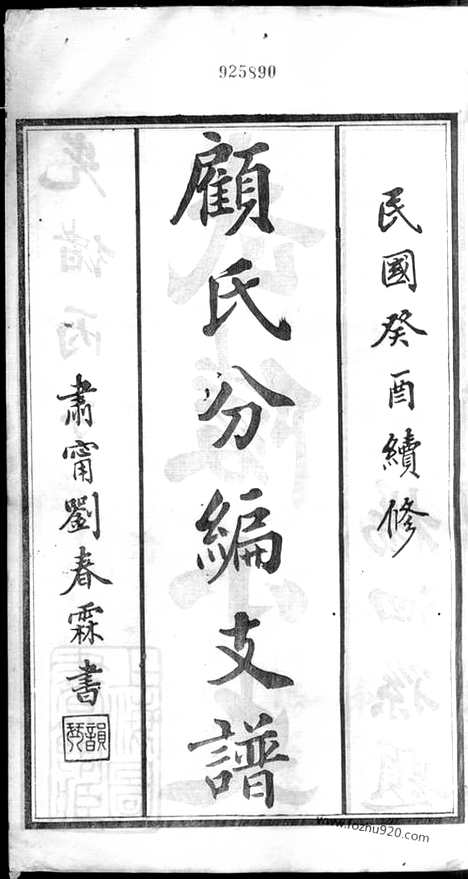 925890
民國癸酉續修
顧氏分編支譜
肅甯劉春霖書
www.fozhu920.com